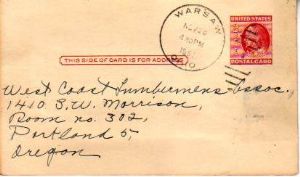 WARSAW
4 30 PM
MO
UNITED STATES
POSTAL CARD
THIS SIDE OF CARD IS FOR ADDRESS
West Coast Lumbermens Assoc.
1410 S.W. Morrison,
Room no. 302,
Portland 5,
Oregon